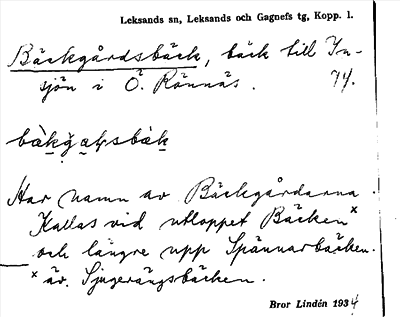 Leksands sn, Leksands och Gagnefs tg, Kopp. l.
Bäckgårdsbäck, bäck till In-
sjön i Ö. Rönnäs. 74.
Har namn av Bäckgårdarna.
Kallas vid utloppet Bäcken x
och längre upp Spännarbäcken.
x äv. Sjugerängsbäcken.
Bror Lindén 1934